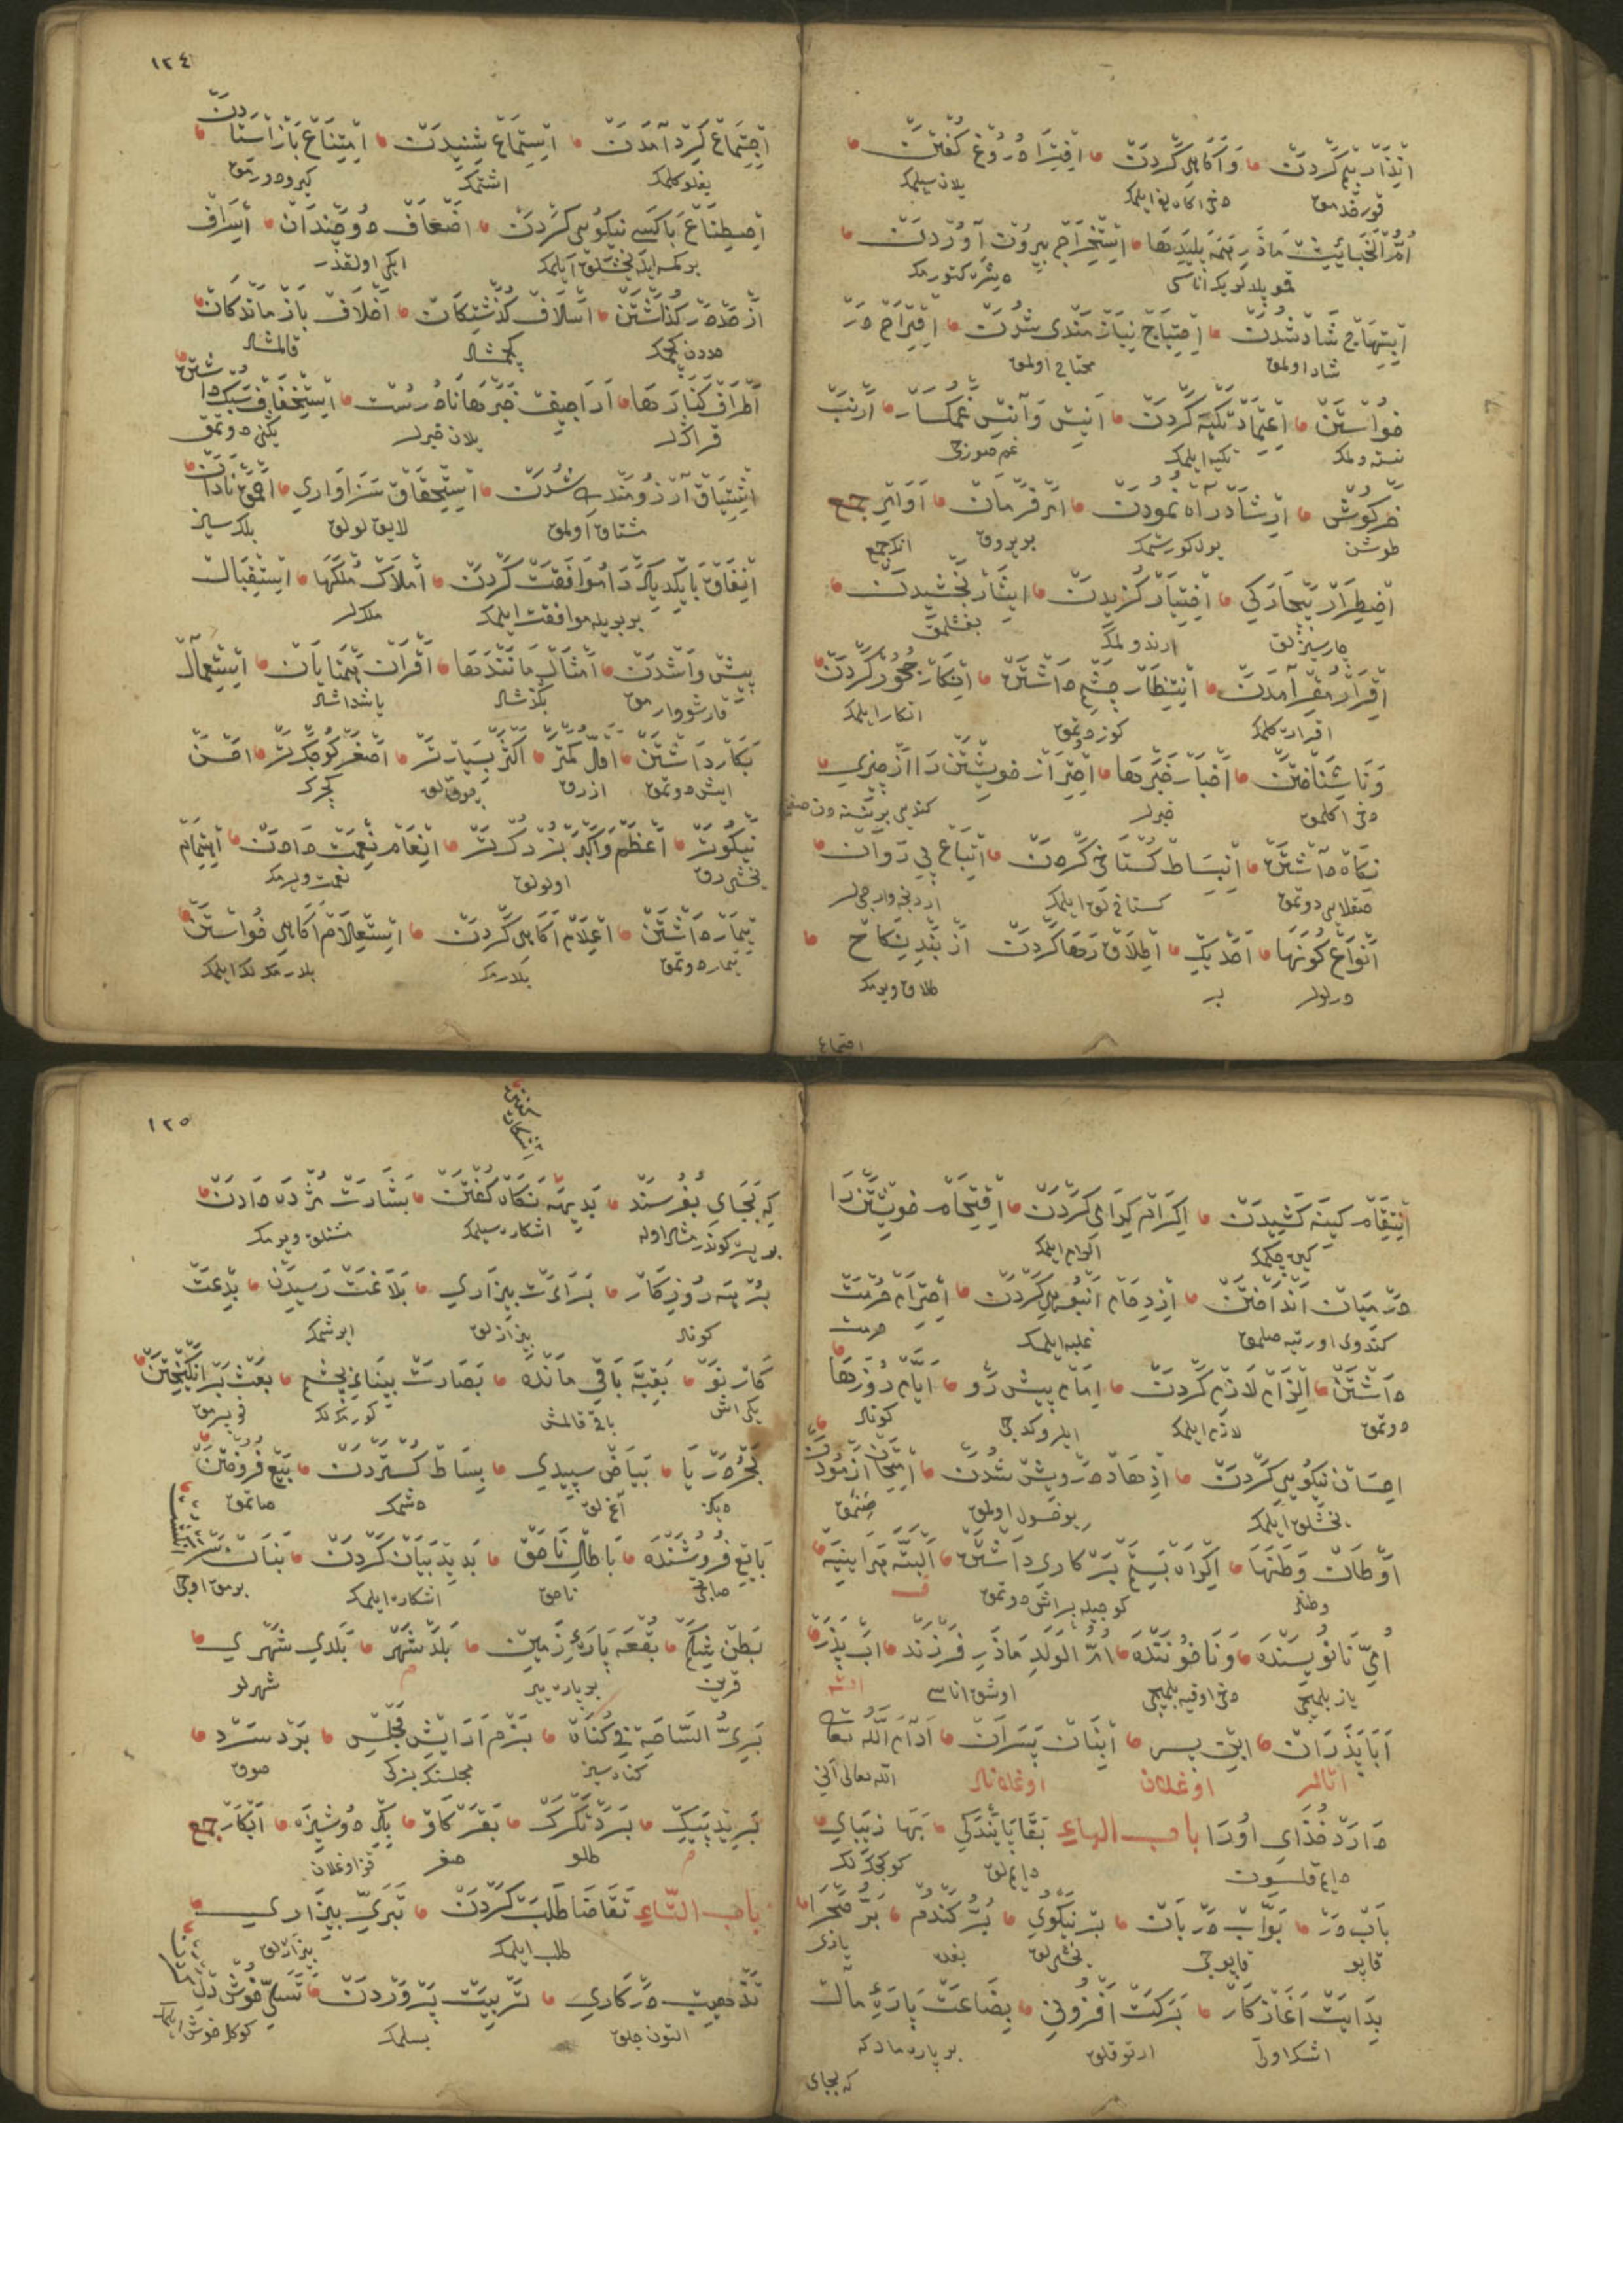 انذار بیم کردن و آکاهی کردن افترا دروغ کفتن
قورقدمق دخی اکاه لغ ایلمک یلان سیلمک
ام الخبائث مادر همه پلیدها استخراج بیرون آوردن
قمو پلیدلریک اناسی دیشره کتورمک
ابتهاج شاد شدن احتیاج نیازمندی شدن اقتراح در
شاد اولمق محتاج اولمق
خواستن اعتماد تکیه کردن انیس و آنس غمکسار ارنب
نسته دلمک تکیه ایلمک
خرکوش ارشاد راه نمودن امر فرمان اوامر جمع
طوشن یول کورستمک بویروق انک جمع
اضطرار بیچارکی اختیار کزیدن ایثار بخشیدن
چارسیزلق بغشلمق
اقرار مقر آمدن انتظار چشم داشتن انکار جحود کردن
اقرار کلمک کوز دوتمق انکار ایلمک
و ناشناختن اخبار خبرها احتراز خویشتن را از چیزی
دخی اکلمق خبرلر
نکاه داشتن انبساط کستاخی کردن اتباع پی روان
صقلایی دوتمق کستاخ لق ایلمک
انواع کونها احد یک اطلاق رها کردن از بند نکاح
درلولر بر طلاق ویرمک
اجتماع
١٢٤
اجتماع کرد آمدن استماع شنیدن امتناع باز استادن
یغلو کلمک اشتمک کیرو دورمق
اصطناع با کسی نیکویی کردن اضعاف دو چندان اسراف
بر کمسه ایله یخشلق ایلمک ایکی اولقدر
از حد در کذاشتن اسلاف کذشتکان اخلاف باز ماندکان
حددن کچمک کچمشلر قالمشلر
اطراف کنارها اراجیف خبرها نادرست استخفاف سبک داشتن
قراکلر یلان خبرلر یکنی دوتمق
اشتیاق آرزومند شدن استحقاق سزاواری احمق نادان
مشتاق اولمق لایق لولق بلکسیز
اتفاق با یکدیکر موافقت کردن املاک ملکها استقبال
بر بریله موافقت ایلمک ملکلر
پیش وا شدن امثال مانندها اقران همتایان استعمال
قارشو وارمق بکزشلر یاشداشلر
بکار داشتن اقل کمتر اکثر بسیارتر اصغر کوچکتر احسن
ایش دوتمق ازرق کجرک
نیکوتر اعظم و اکبر بزرکتر انعام نعمت دادن اهتمام
یخشی رق اولولق نعمت ویرمک
تیمار داشتن اعلام آکاهی کردن استعلام آکاهی خواستن
تیمار دوتمق بلدرمک بلدرمکلک ایلمک
انتقام کینه کشیدن اکرام کرامی کردن اقتحام خویشتن را
کین چکمک اکرام ایلمک
در میان انداختن ازدحام انبوهی کردن احترام حرمت
کندوی اورتیه صلمق غلبه ایلمک حرمت
داشتن الزام لازم کردن امام پیش رو ایام روزها
دوتمق لازم ایلمک کونلر
احسان نیکویی کردن ازهاد درویش شدن امتحان آزمودن
یخشلق ایلمک یوقسول اولمق صنمق
اوطان وطنها اکراه بستم بر کاری داشتن البته هرآینه
وطنلر کوجیله بر اش دوتمق ف
امی نانویسنده و ناخواننده ام الولد مادر فرزند اب پدر
یاز بلمیجی دخی اوقیه بلمیجی اوشق اناسی
ابا پدران ابن پسر ابنان پسران ادام الله تعالی
اتالر اوغلان اوغلانلر الله تعالی آنی
دارد خدای اورا باب الباء بقا پایندکی بها زیبای
دایم قلسون دایم لق کوکچک لک
باب در بواب دربان بر نیکوی بر کندم بر صحرا
قاپو قاپوجی یخشی لق بغدای یازی
بدایت آغاز کار برکت افزونی بضاعت پاره مال
اش اولی ارتوقلق بر پاره مالک
که بجای
١٢٥
که بجای بفرستند بدیهه نکاه کفتن بشارت مژده دادن
بر یره کوندرمشلر اوله اشکاره سیلمک مشتلق ویرمک
برهه روزکار براءت بیزاری بلاغت رسیدن بدعت
کونلر بیزازلق ایرشمک
کار نو بقیه باقی مانده بصارت بینای چشم بعث برانکیختن
یکی اش باقی قالمش کورمکلک قوپرمق
بحر دریا بیاض سپیدی بساط کستردن بیع فروختن
دیکز آغ لق دشمک صاتمق
بایع فروشنده باطل ناحق بدید بیان کردن بنان سر انکشت
صاتیجی ناحق اشکاره ایلمک برمق اوجی
بطن شکم بقعه پاره زمین بلد شهر بلدی شهری
قرین بر پاره ییر م شهرلو
بری الساحة بی کناه بزم آرایش مجلس برد سرد
کناه سیز مجلسنک بزکی صوق
برید پیک برد تکرک بقر کاو بکر دوشیزه ابکار جمع
م طلو صغر قز اوغلان
باب التاء تقاضا طلب کردن تبری بیزاری
طلب ایلمک بیزارلق
تذهیب زرکاری تربیت پروردن تسلی خوش دل
التون جلق بسلمک کوکل خوش ایلمک